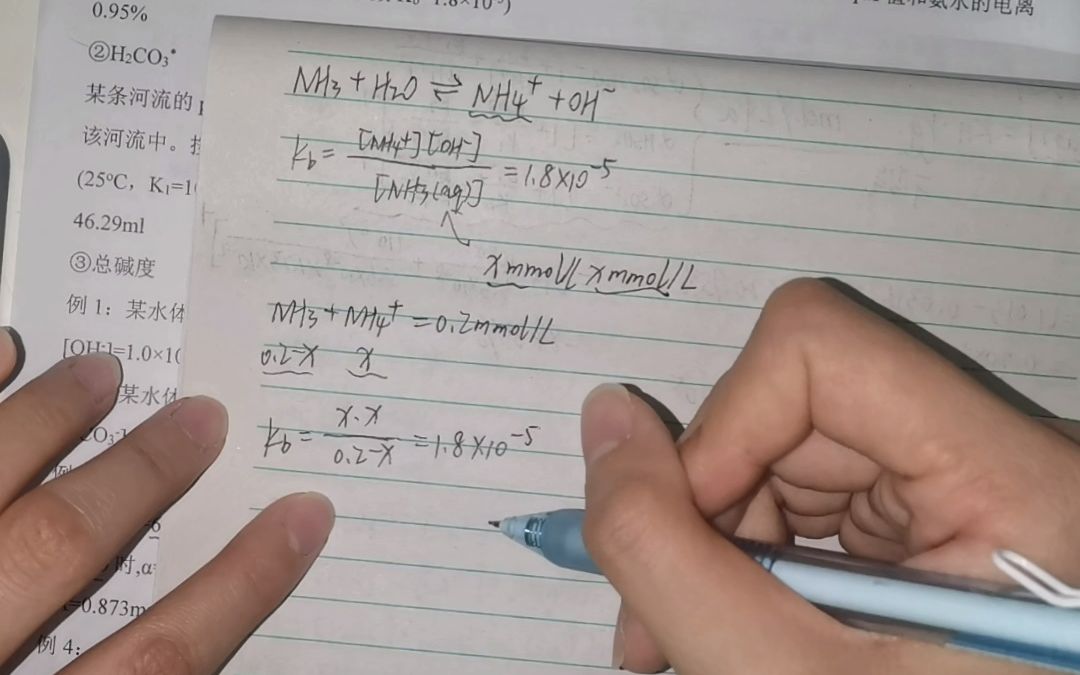 1.8×10
值和氨水的电离
0.95%
②H₂CO₃*
某条河流的
该河流中。
(25°C，K₁=1
46.29ml
③总碱度
例 1：某水体
[OH⁻]=1.0×10
某水体
CO₃
时,α
=0.873m
例 4：
NH3 + H2O ⇌ NH4⁺ + OH⁻
Kb = [NH4⁺][OH⁻] / [NH3(aq)] = 1.8×10⁻⁵
x mmol/L x mmol/L
NH3 + NH4⁺ = 0.2mmol/L
0.2-x x
Kb = x·x / 0.2-x = 1.8×10⁻⁵